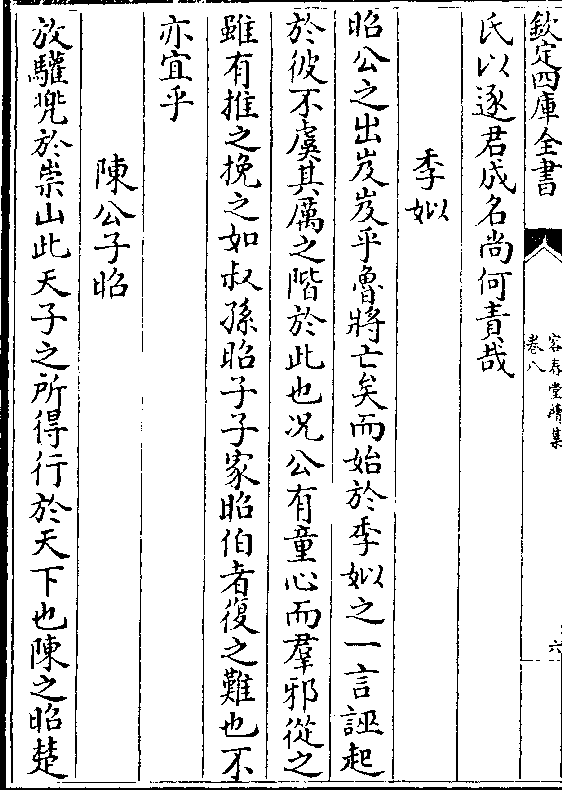 欽定四庫全書
容春堂續集
卷八
六
氏以逐君成名尚何責哉
季姒
昭公之出岌岌乎魯將亡矣而始於季姒之一言誣起
於彼不虞其厲之階於此也况公有童心而羣邪從之
雖有推之挽之如叔孫昭子子家昭伯者復之難也不
亦宜乎
陳公子昭
放驩兜於崇山此天子之所得行於天下也陳之昭楚